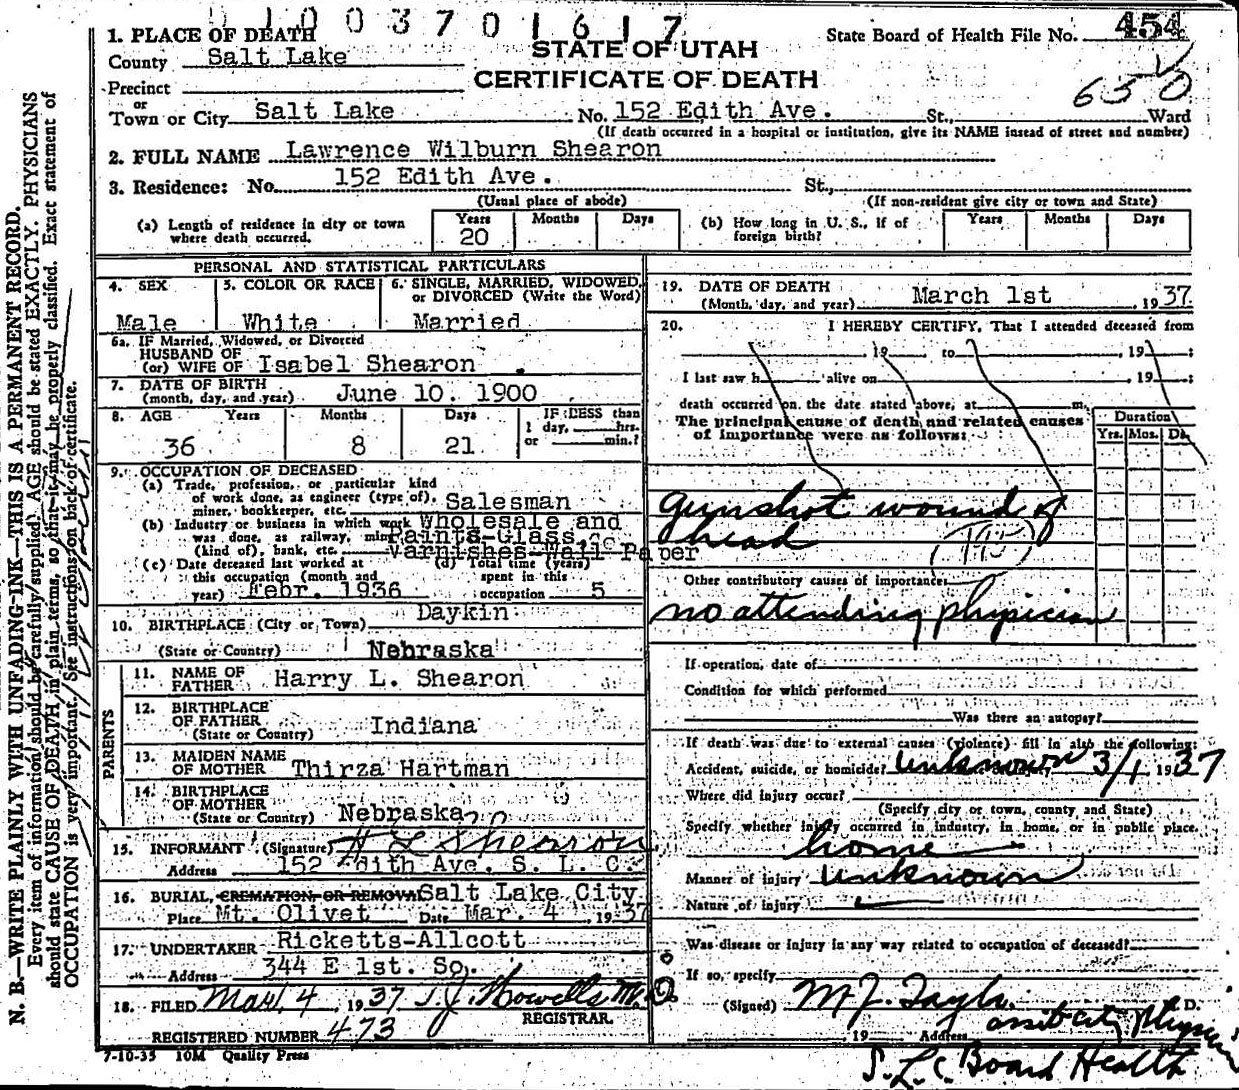 01003701617
1. PLACE OF DEATH
State Board of Health File No. 454
County Salt Lake
STATE OF UTAH
CERTIFICATE OF DEATH
Precinct
650
or
Town or City Salt Lake No. 152 Edith Ave. St., Ward
(If death occurred in a hospital or institution, give its NAME instead of street and number)
2. FULL NAME Lawrence Wilburn Shearon
3. Residence: No. 152 Edith Ave. St.,
(Usual place of abode) (If non-resident give city or town and State)
(a) Length of residence in city or town where death occurred. Years 20 Months Days
(b) How long in U. S., if of foreign birth? Years Months Days
PERSONAL AND STATISTICAL PARTICULARS
4. SEX Male
5. COLOR OR RACE White
6. SINGLE, MARRIED, WIDOWED, or DIVORCED (Write the Word) Married
6a. IF Married, Widowed, or Divorced
HUSBAND OF
(or) WIFE OF Isabel Shearon
7. DATE OF BIRTH
(month, day, and year) June 10. 1900
8. AGE Years Months Days IF LESS than
1 day, hrs.
or min.?
36 8 21
9. OCCUPATION OF DECEASED
(a) Trade, profession, or particular kind
of work done, as engineer (type of),
miner, bookkeeper, etc. Salesman
(b) Industry or business in which work Wholesale and
was done, as railway, mine Paints-Glass,
(kind of), bank, etc. Varnishes-Wall Paper
(c) Date deceased last worked at
this occupation (month and
year) Febr. 1936
(d) Total time (years)
spent in this
occupation 5
10. BIRTHPLACE (City or Town) Daykin
(State or Country) Nebraska
PARENTS
11. NAME OF
FATHER Harry L. Shearon
12. BIRTHPLACE
OF FATHER
(State or Country) Indiana
13. MAIDEN NAME
OF MOTHER Thirza Hartman
14. BIRTHPLACE
OF MOTHER
(State or Country) Nebraska
15. INFORMANT (Signature) H L Shearon
Address 152 Edith Ave. S. L. C.
16. BURIAL, CREMATION OR REMOVAL Salt Lake City
Place Mt. Olivet Date Mar. 4, 1937
17. UNDERTAKER Ricketts-Allcott
Address 344 E 1st. So.
18. FILED Mar. 4, 1937 J. Howells M.D.
REGISTRAR.
REGISTERED NUMBER 473
7-10-35 10M Quality Press
19. DATE OF DEATH
(Month, day, and year) March 1st, 1937
20. I HEREBY CERTIFY, That I attended deceased from
, 19 to , 19 ;
I last saw h alive on , 19 ;
death occurred on the date stated above, at m.
The principal cause of death and related causes
of importance were as follows:
Duration
Yrs. Mos. Ds.
Gunshot wound of
head
Other contributory causes of importance:
no attending physician
If operation, date of
Condition for which performed
Was there an autopsy?
If death was due to external causes (violence) fill in also the following:
Accident, suicide, or homicide? unknown 3/1 1937
Where did injury occur?
(Specify city or town, county and State)
Specify whether injury occurred in industry, in home, or in public place.
home
Manner of injury unknown
Nature of injury
Was disease or injury in any way related to occupation of deceased?
If so, specify
(Signed) M. D.
19 Address
S. L. C. Board Health
N. B.—WRITE PLAINLY WITH UNFADING INK—THIS IS A PERMANENT RECORD.
Every item of information should be carefully supplied. AGE should be stated EXACTLY. PHYSICIANS
should state CAUSE OF DEATH in plain terms, so that it may be properly classified. Exact statement of
OCCUPATION is very important. See instructions on back of certificate.